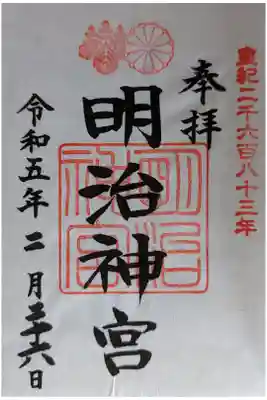 皇紀二千六百八十三年
奉拝
明治神宮
明治
神宮
令和五年二月二十六日